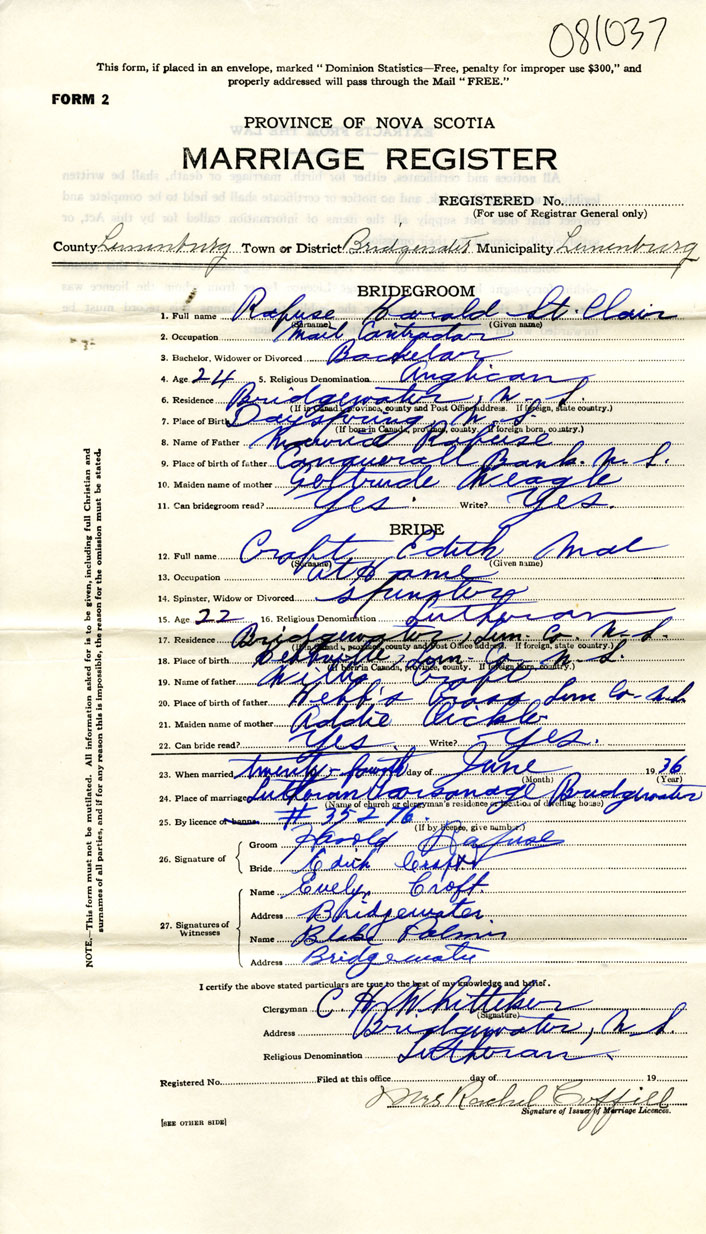 081037
This form, if placed in an envelope, marked "Dominion Statistics—Free, penalty for improper use $300," and
properly addressed will pass through the Mail "FREE."
FORM 2
PROVINCE OF NOVA SCOTIA
MARRIAGE REGISTER
REGISTERED No.
(For use of Registrar General only)
County Lunenburg Town or District Bridgewater Municipality Lunenburg
BRIDEGROOM
1. Full name Rafuse Harald St. Clair
(Surname) (Given name)
2. Occupation Mail Contractor
3. Bachelor, Widower or Divorced Bachelor
4. Age 24 5. Religious Denomination Anglican
6. Residence Bridgewater, N. S.
(If in Canada, province, county and Post Office address. If foreign, state country.)
7. Place of Birth Dayspring, N. S.
(If born in Canada, province, county. If foreign born, country.)
8. Name of Father Rafuse
9. Place of birth of father Conquerall Bank. N. S.
10. Maiden name of mother Gertrude Neagle
11. Can bridegroom read? Yes. Write? Yes.
BRIDE
12. Full name Croft, Edith Mae
(Surname) (Given name)
13. Occupation At Home
14. Spinster, Widow or Divorced Spinster
15. Age 22 16. Religious Denomination Lutheran
17. Residence Bridgewater, Lun. Co. N. S.
(If in Canada, province, county and Post Office address. If foreign, state country.)
18. Place of birth Lun. Co. N. S.
(If born in Canada, province, county. If foreign born, country.)
19. Name of father Croft
20. Place of birth of father Lun Co. N.S.
21. Maiden name of mother Addie
22. Can bride read? Yes. Write? Yes.
23. When married twenty-fourth day of June 1936
(Month) (Year)
24. Place of marriage Lutheran Parsonage Bridgewater
(Name of church or clergyman's residence or location of dwelling house)
25. By licence or banns # 35276.
(If by licence, give number.)
26. Signature of
Groom Harold Rafuse
Bride Edith Croft
27. Signatures of Witnesses
Name Evelyn Croft.
Address Bridgewater.
Name Blake
Address Bridgewater
I certify the above stated particulars are true to the best of my knowledge and belief.
Clergyman C. H. Whitteker
(Signature)
Address Bridgewater, N. S.
Religious Denomination Lutheran.
Registered No. Filed at this office day of 19
Mrs Rachel Coffill
Signature of Issuer of Marriage Licences.
[SEE OTHER SIDE]
NOTE.—This form must not be mutilated. All information asked for is to be given, including full Christian and
surnames of all parties, and if for any reason this is impossible, the reason for the omission must be stated.